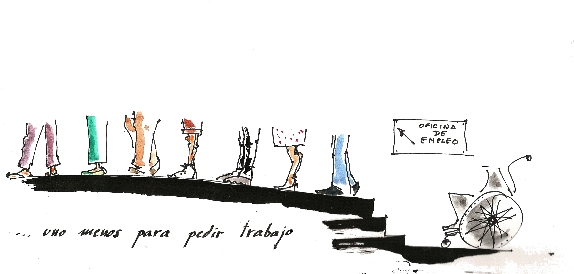 OFICINA
DE
EMPLEO
... uno menos para pedir trabajo